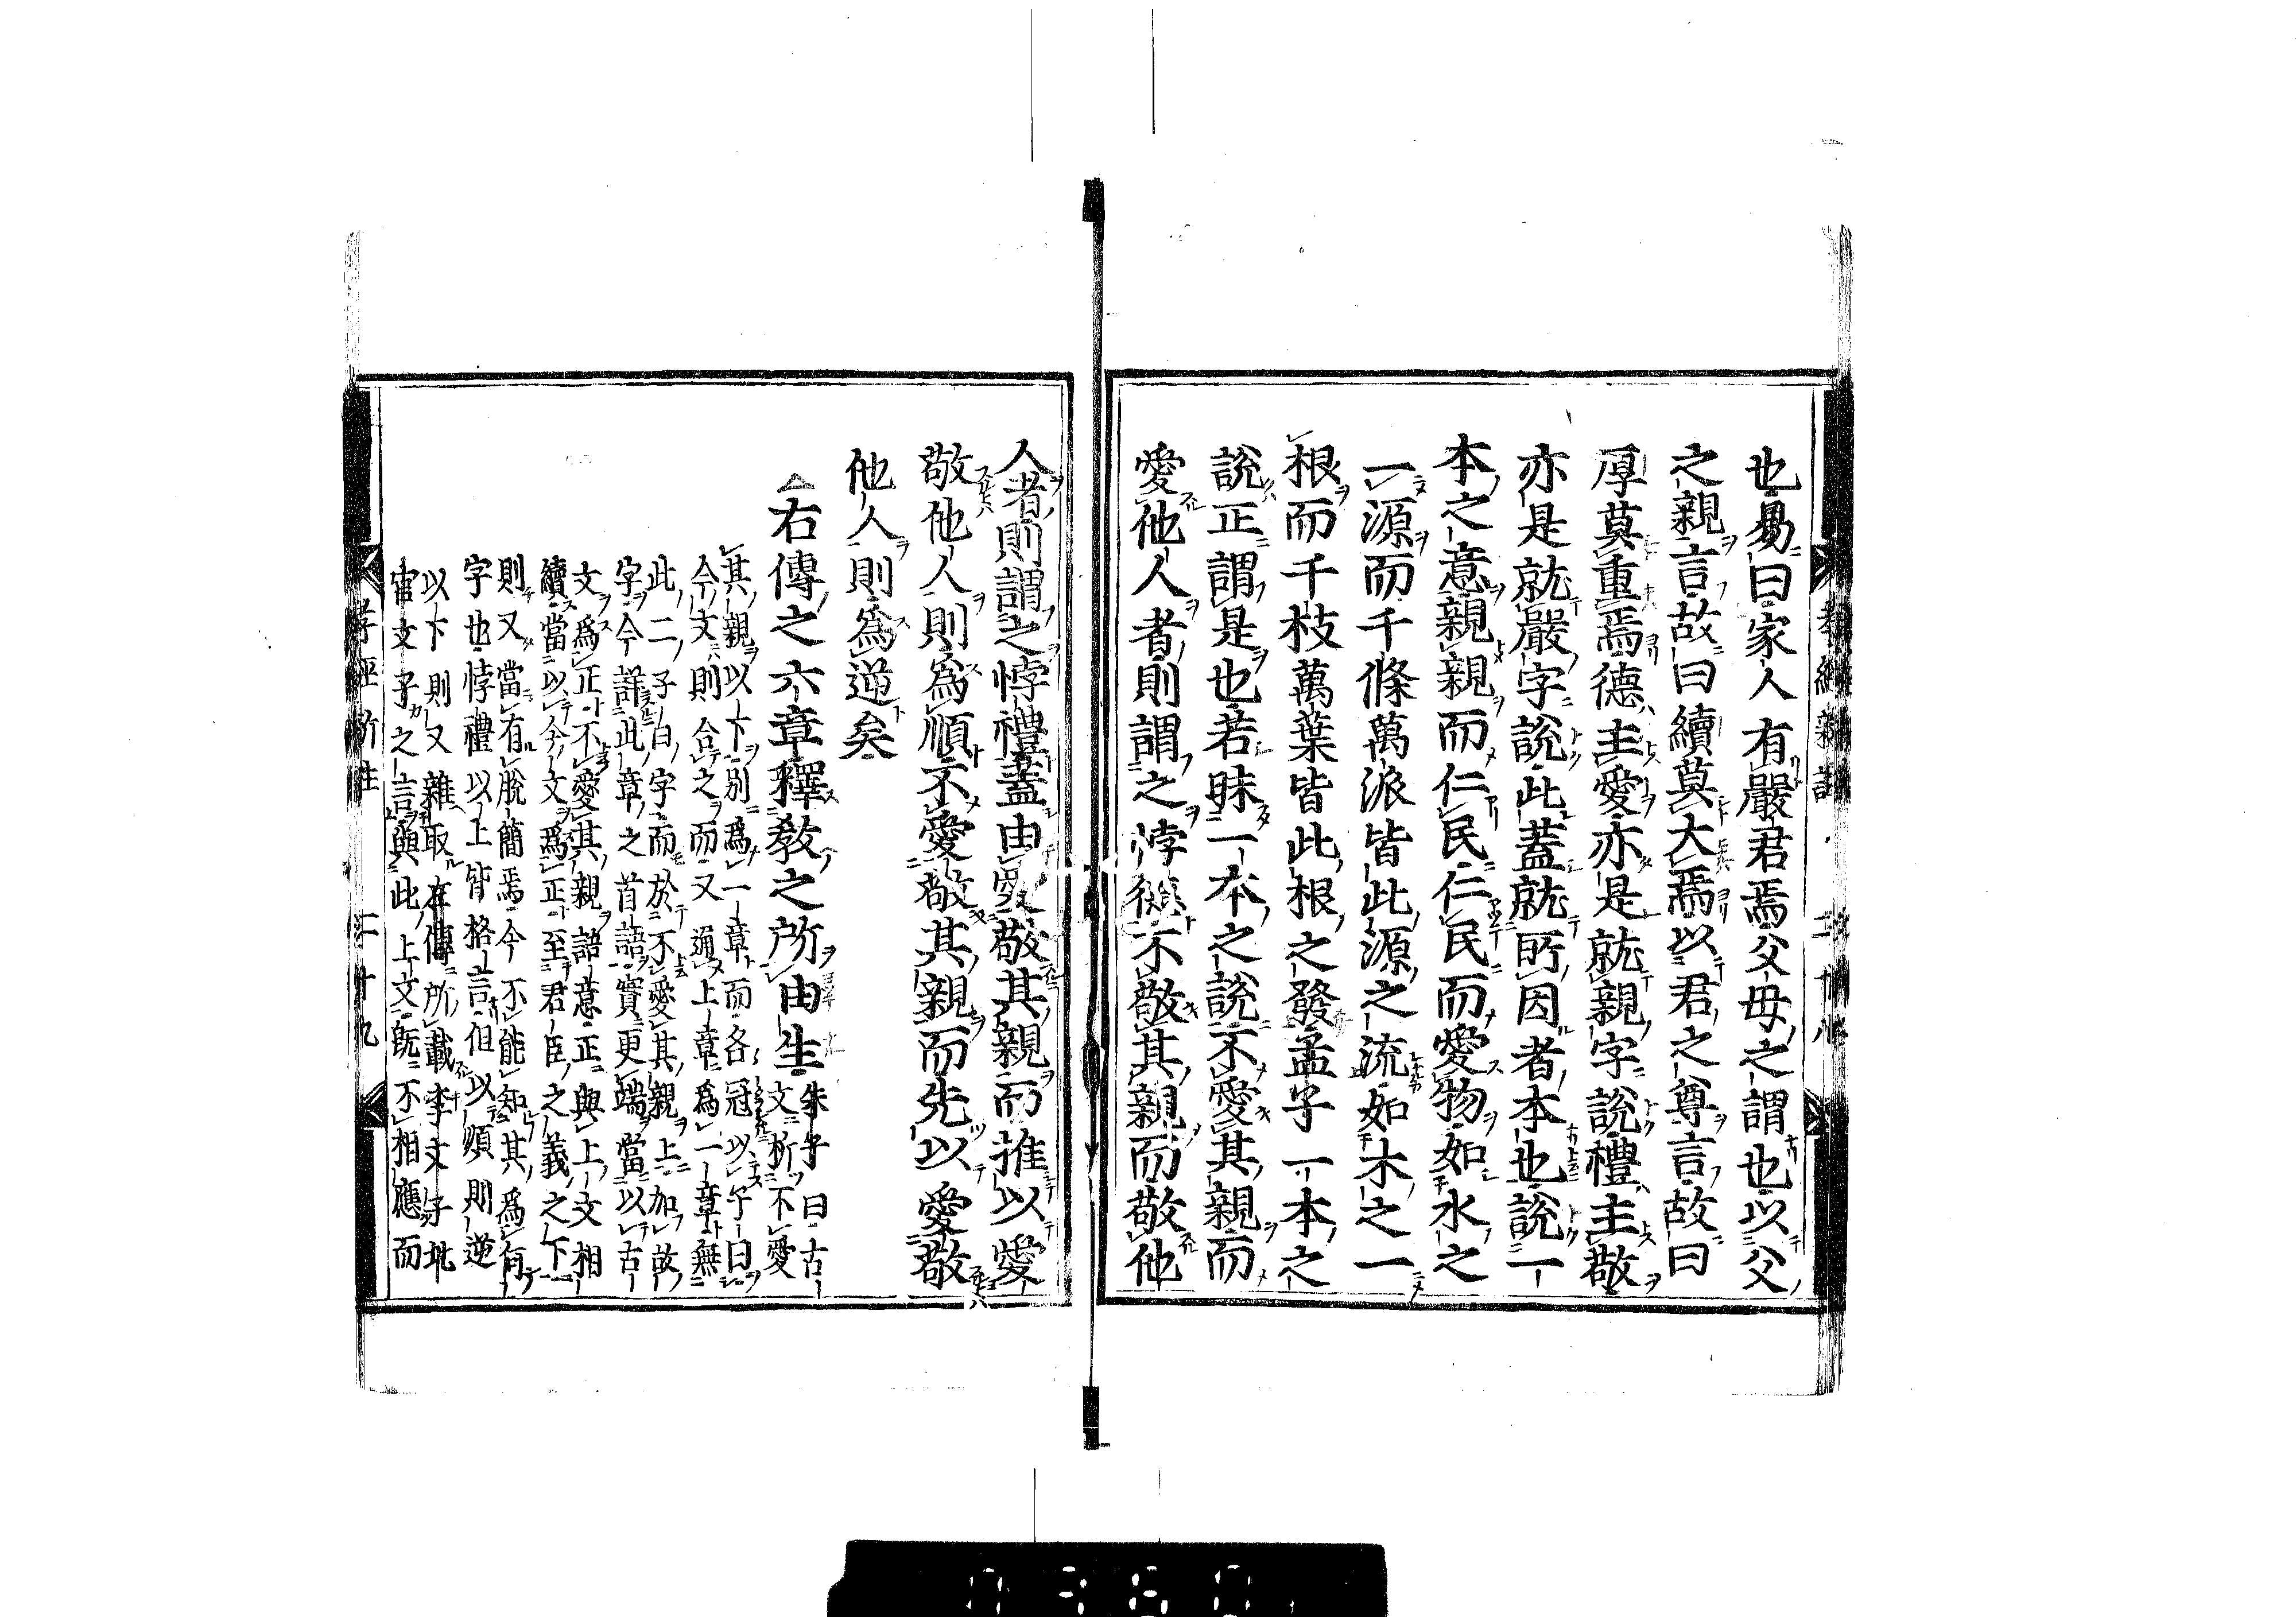 也易曰家人有嚴君焉父母之謂也以父
之親言故曰續莫大焉以君之尊言故曰
厚莫重焉德主愛亦是就親字說禮主敬
亦是就嚴字說此蓋就所因者本也說一
本之意親親而仁民仁民而愛物如水之
一源而千條萬派皆此源之流如木之一
根而千枝萬葉皆此根之發孟子一本之
說正謂是也若昧一本之說不愛其親而
愛他人者則謂之悖德不敬其親而敬他
人者則謂之悖禮蓋由愛敬其親而推以愛
敬他人則爲順不愛敬其親而先以愛敬
他人則爲逆矣
右傳之六章釋敎之所由生
朱子曰古
文析不愛
其親以下別爲一章而各冠以子曰
今文則合之而又通上章爲一章無
此二子曰字而於不愛其親上加故
字今詳此章之首語實更端當以古
文爲正不愛其親語意正與上文相
續當以今文爲正至君臣之義之下
則又當有脫簡焉今不能知其爲何
字也悖禮以上皆格言但以順則逆
以下則又雜取左傳所載季文子北
宮文子之言與此上文旣不相應而
孝經 二十九